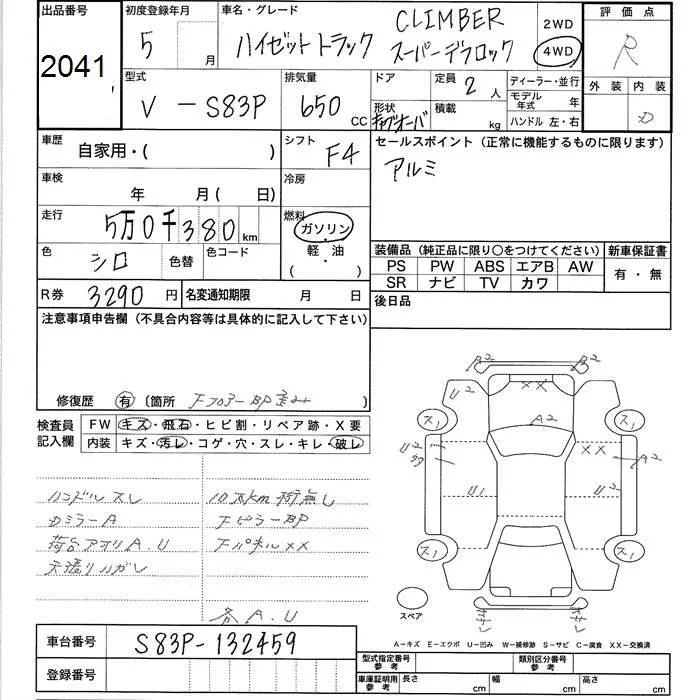 出品番号 初度登録年月 車名・グレード 評価点
2041 5 月 ハイゼットトラック CLIMBER スーパーデフロック 2WD 4WD R
外装 内装
D
型式 排気量 ドア 定員 ディーラー・並行
V-S83P 650 CC 2 人 モデル年式 年
形状 キャブオーバ 積載 kg ハンドル 左・右
車歴 シフト セールスポイント(正常に機能するものに限ります)
自家用・( ) F4 アルミ
車検 冷房
年 月( 日)
走行 燃料
5万0千380 km ガソリン・軽・油( )
色 シロ 色替 色コード
装備品(純正品に限り○をつけてください) 新車保証書
PS PW ABS エアB AW 有・無
SR ナビ TV カワ
R券 3290 円 名変通知期限 月 日 後日品
注意事項申告欄(不具合内容等は具体的に記入して下さい)
修復歴 有 〔箇所 )
検査員記入欄 FW キズ・飛石・ヒビ割・リペア跡・X要
内装 キズ・汚レ・コゲ・穴・スレ・キレ・破レ
ハンドルスレ
ミラーA
荷台アオリA.U
荷無し
FピラーBP
FパネルXX
各A.U
A2 A2
U2 XX
スレ スレ
A2
U2 XX A2
U1 U2
スレ スレ
スペア
A-キズ E-エクボ U-凹み W-補修跡 S-サビ C-腐食 XX-交換済
車台番号 S83P-132459
登録番号
型式指定番号参考 類別区分番号参考
車庫証明用参考 長さ cm 幅 cm 高さ cm